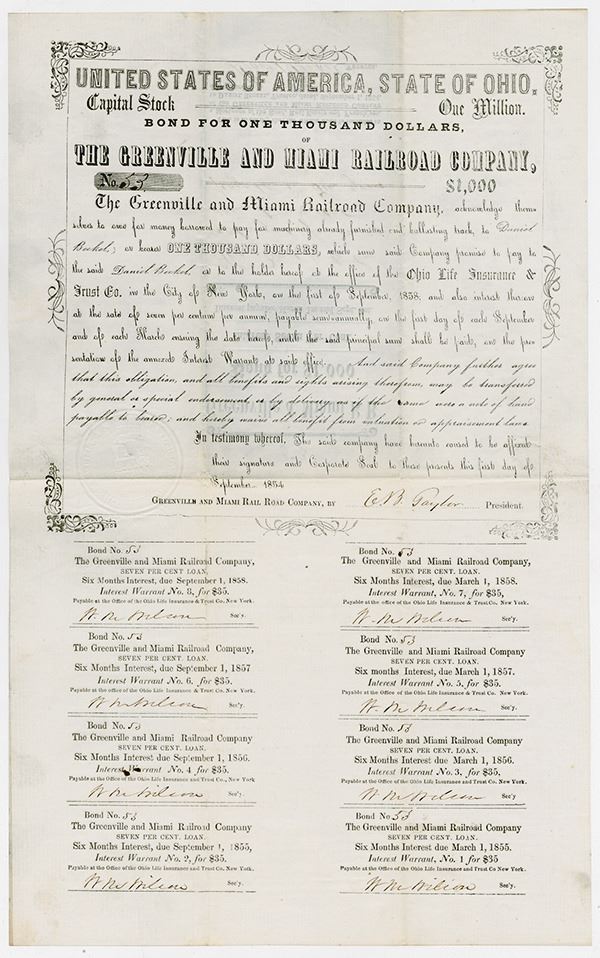 UNITED STATES OF AMERICA, STATE OF OHIO.
Capital Stock One Million.
BOND FOR ONE THOUSAND DOLLARS,
OF
THE GREENVILLE AND MIAMI RAILROAD COMPANY,
No. 53 $1,000
The Greenville and Miami Railroad Company, acknowledge them-
selves to owe for money borrowed to pay for machinery already furnished and ballasting track, to Daniel
Beckel, or bearer ONE THOUSAND DOLLARS, which sum said Company promise to pay to
the said Daniel Beckel, or to the holder hereof at the office of the Ohio Life Insurance &
Trust Co. in the City of New York, on the first of September, 1858, and also interest thereon
at the rate of seven per centum per annum, payable semi-annually, on the first day of each September
and of each March ensuing the date hereof, until the said principal sum shall be paid, on the pre-
sentation of the annexed Interest Warrants at said office. And said Company further agree
that this obligation, and all benefits and rights arising therefrom, may be transferred
by general or special endorsement, or by delivery, as if the same were a note of hand
payable to bearer; and hereby waives all benefit from valuation or appraisement laws.
In testimony whereof, The said company have hereunto caused to be affixed
their signature and Corporate Seal to these presents this first day of
September 1854
GREENVILLE AND MIAMI RAIL ROAD COMPANY, BY E. B. Taylor President.
Bond No. 53
The Greenville and Miami Railroad Company,
SEVEN PER CENT. LOAN,
Six Months Interest, due September 1, 1858.
Interest Warrant No. 8, for $35.
Payable at the Office of the Ohio Life Insurance & Trust Co. New York.
W. M. Wilson Sec'y.
Bond No. 53
The Greenville and Miami Railroad Company,
SEVEN PER CENT. LOAN.
Six Months Interest, due March 1, 1858.
Interest Warrant, No. 7, for $35,
Payable at the Office of the Ohio Life Insurance & Trust Co. New York.
W. M. Wilson Sec'y.
Bond No. 53
The Greenville and Miami Railroad Company,
SEVEN PER CENT. LOAN.
Six Months Interest, due September 1, 1857
Interest Warrant No. 6. for $35.
Payable at the office of the Ohio Life Insurance & Trust Co. New York.
W. M. Wilson Sec'y.
Bond No. 53
The Greenville and Miami Railroad Company
SEVEN PER CENT. LOAN.
Six months Interest, due March 1, 1857.
Interest Warrant No. 5, for $35.
Payable at the office of the Ohio Life Insurance & Trust Co. New York.
W. M. Wilson Sec'y.
Bond No. 53
The Greenville and Miami Railroad Company
SEVEN PER CENT. LOAN.
Six Months Interest due September 1, 1856.
Interest Warrant No. 4 for $35.
Payable at the Office of the Ohio Life Insurance and Trust Co. New York
W. M. Wilson Sec'y.
Bond No. 53
The Greenville and Miami Railroad Company,
SEVEN PER CENT. LOAN.
Six Months Interest due March 1, 1856.
Interest Warrant No. 3. for $35.
Payable at the Office of the Ohio Life Insurance and Trust Co. New York.
W. M. Wilson Sec'y.
Bond No. 53
The Greenville and Miami Railroad Company
SEVEN PER CENT. LOAN.
Six Months Interest, due September 1, 1855,
Interest Warrant No 2, for $35.
Payable at the Office of the Ohio Life Insurance and Trust Co. New York.
W. M. Wilson Sec'y.
Bond No 53
The Greenville and Miami Railroad Company
SEVEN PER CENT. LOAN.
Six Months Interest due March 1, 1855.
Interest Warrant, No. 1 for $35
Payable at the Office of the Ohio Life Insurance and Trust Co New York.
W. M. Wilson Sec'y.